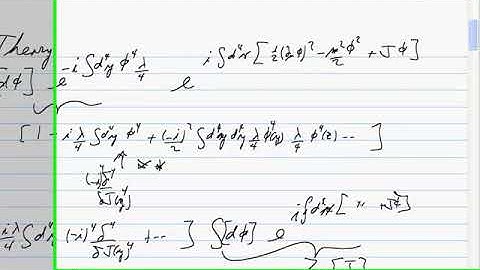 Theory
[dϕ] e^{-i∫d⁴y ϕ⁴ λ/4} e^{i∫d⁴x[½(∂ϕ)² - m²/2 ϕ² + Jϕ]}
[1 - i λ/4 ∫d⁴y ϕ⁴ + (-i)²/2 ∫d⁴y d⁴z λ/4 ϕ⁴(y) λ/4 ϕ⁴(z) ... ]
(-i)⁴δ⁴/δJ(y)⁴
iλ/4 ∫d⁴y (-i)⁴δ⁴/δJ(y)⁴ + ... ] ∫[dϕ] e^{i∫d⁴x[ " + Jϕ]}
[J]